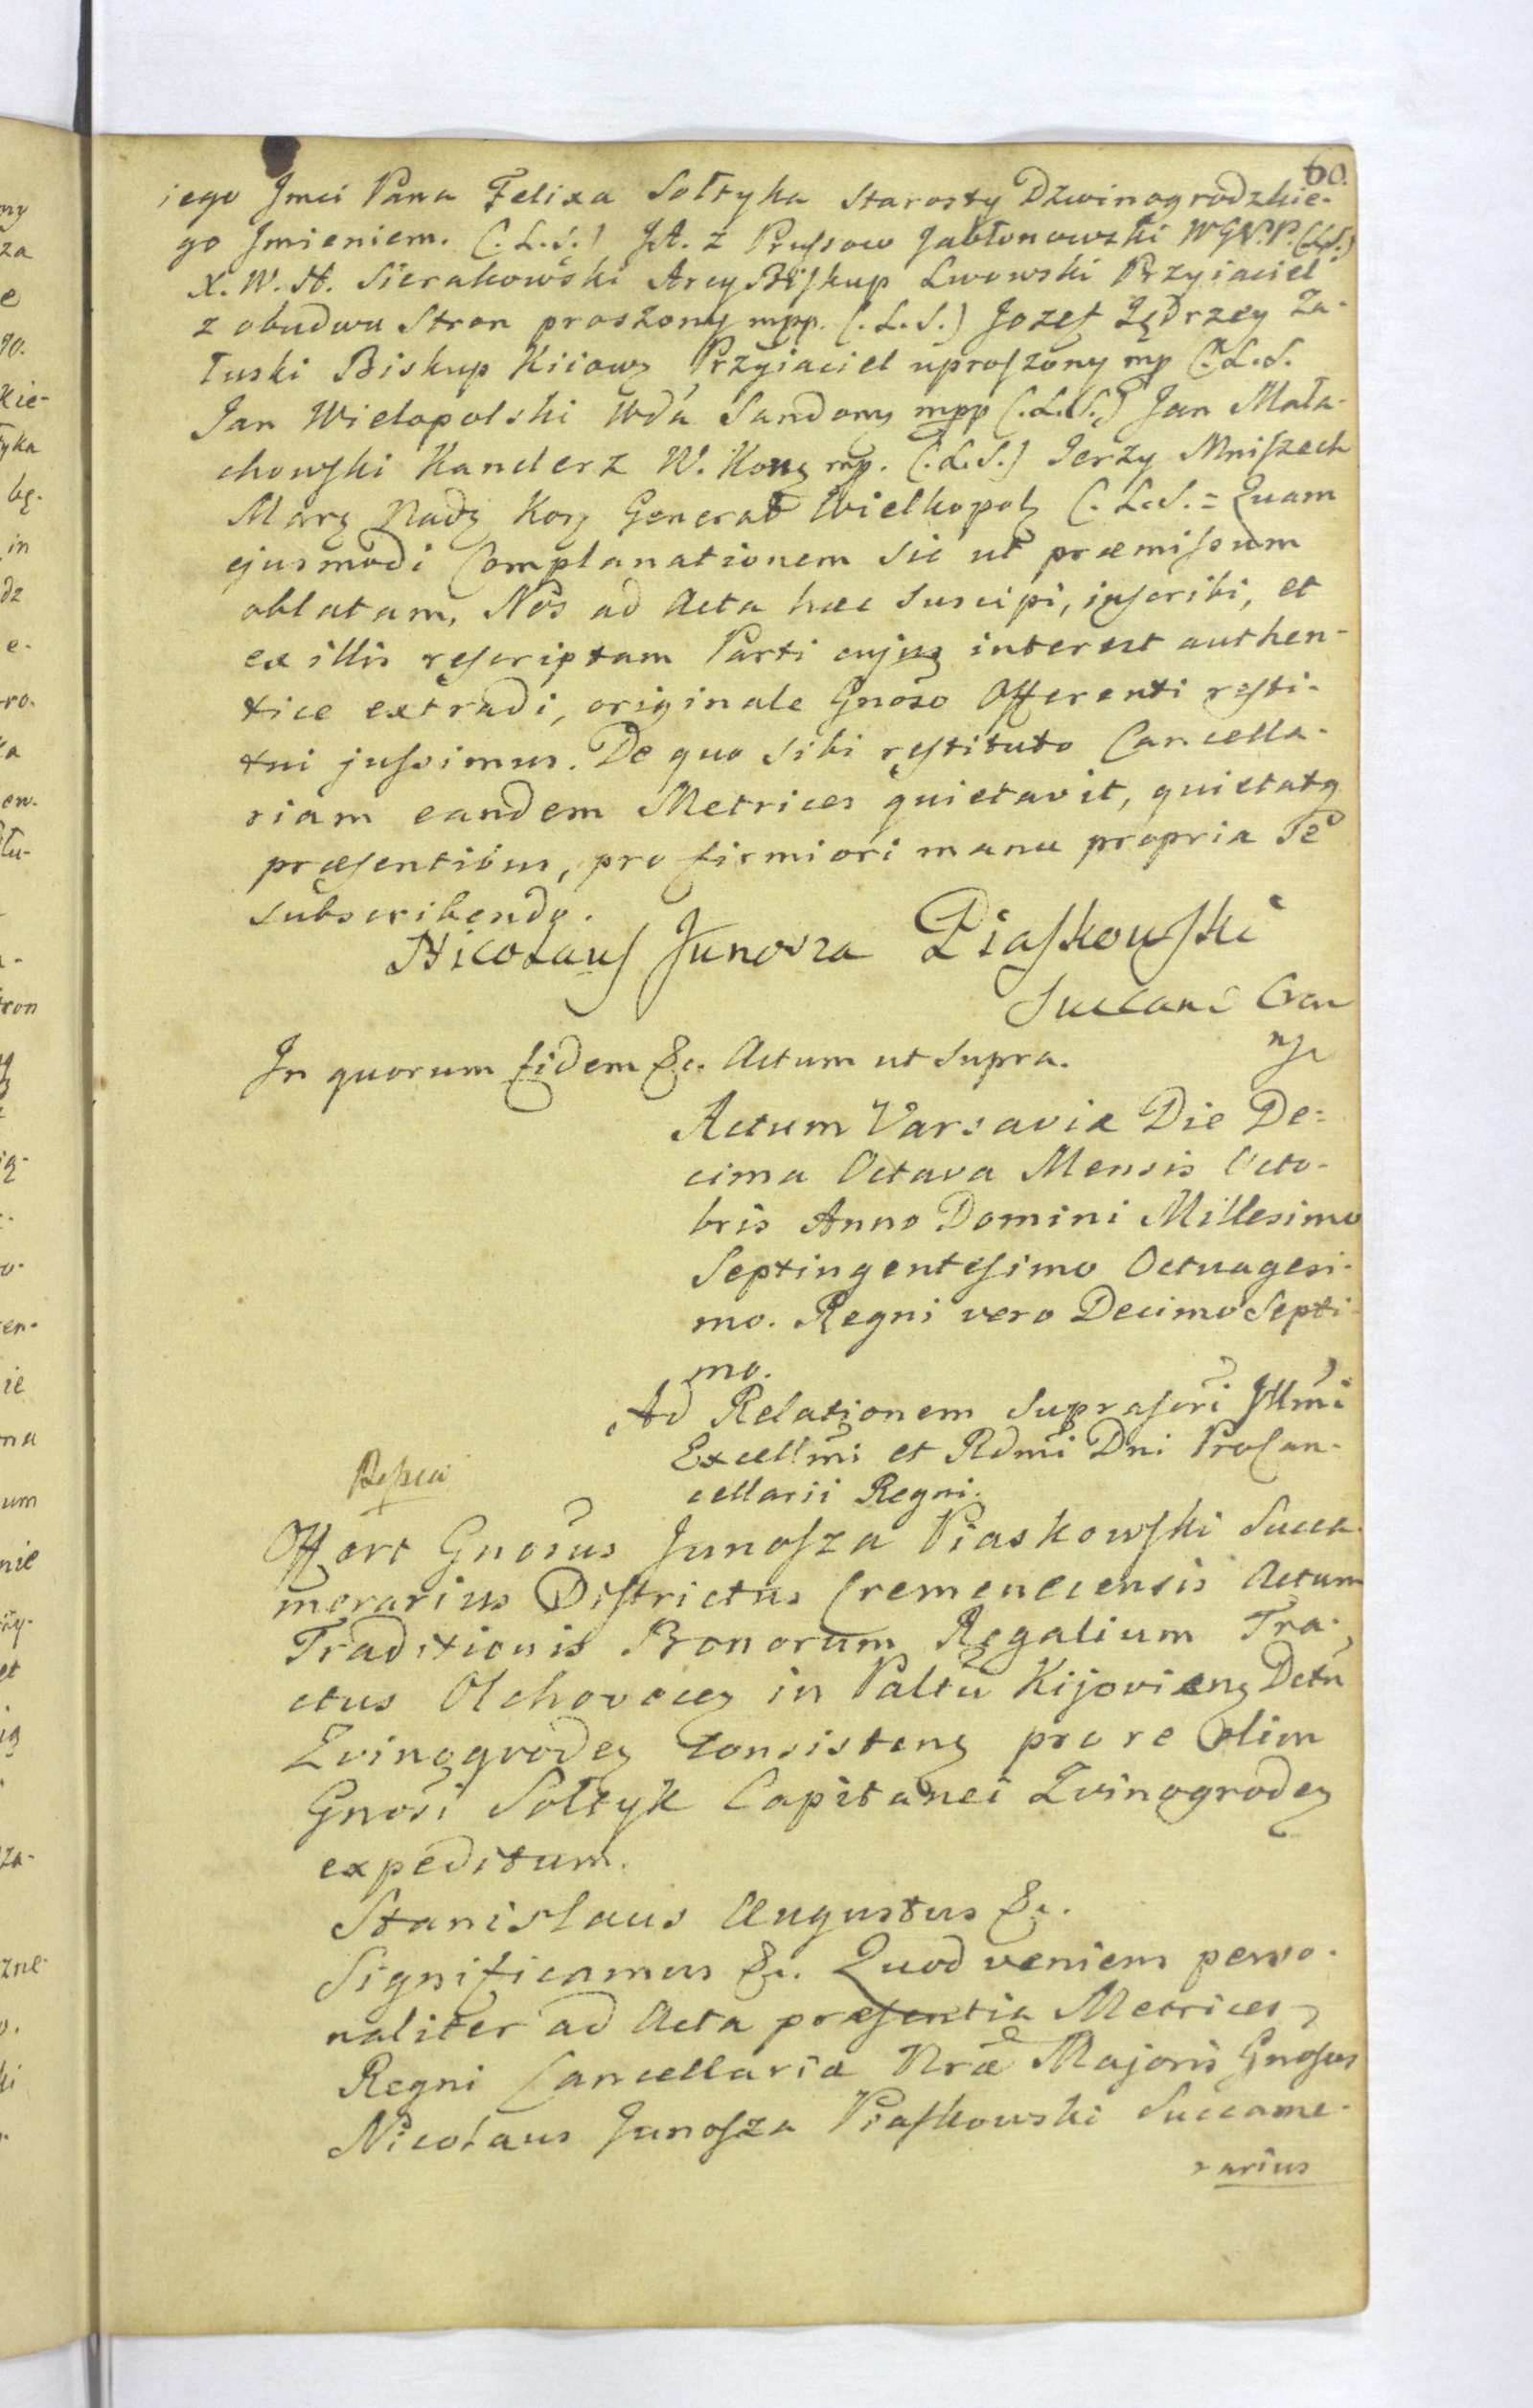 60.
iego Jmci Pana Felixa Sołtyka Starosty Dzwinogrodzkie-
go Jmieniem. (.L.S.) JA. z Prussow Jabłonowski WGNP. (LS.)
X. W. H. Sierakowski Arcy Biskup Lwowski Przyiaciel
z obudwu Stron proszony mpp. (.L.S.) Jozef Jędrzey Za-
łuski Biskup Kiiowz Przyiaciel uproszony mp (.L.S.
Jan Wielopolski Wda Sandomz mpp (.L.S.) Jan Mała-
chowski Kanclerz W. Konz mp. (.L.S.) Jerzy Mniszech
Marz Nadz Korz Generał Wielkopolz (.L.S. = Quam
ejusmodi Complanationem sic ut præmissum
oblatam, Nos ad Acta hæc suscipi, inscribi, et
ex illis rescriptam Parti cujus interest authen-
tice extradi, originale Gnoso Offerenti resti-
tui jussimus. De quo sibi restituto Cancella-
riam eandem Metrices quietavit, quietatq
præsentibus, pro firmiori manu propria Se
subscribendo.
Nicolaus Junosza Piaskowski
Succam Crem
mp
In quorum fidem &c. Actum ut supra.
Actum Varsaviæ Die De=
cima Octava Mensis Octo-
bris Anno Domini Millesimo
Septingentesimo Octuagesi-
mo. Regni vero Decimo Septi-
mo.
Ad Relationem suprascri Jllmi
Excellmi et Rdmi Dni ProCan-
cellarii Regni.
Offert Gnosus Junosza Piaskowski Succa-
merarius Districtus Cremenecensis Actum
Traditionis Bonorum Regalium Tra-
ctus Olchovecz in Paltu Kijovienz Dctu
Zvinogrodez consistenz pro re olim
Gnosi Sołtyk Capitanei Zvinogrodez
expeditum.
Stanislaus Augustus &c.
Significamus &c. Quod veniens perso-
naliter ad Acta præsentia Metrices
Regni Cancellariæ Nræ Majoris Gnosus
Nicolaus Junosza Piaskowski Succame-
rarius